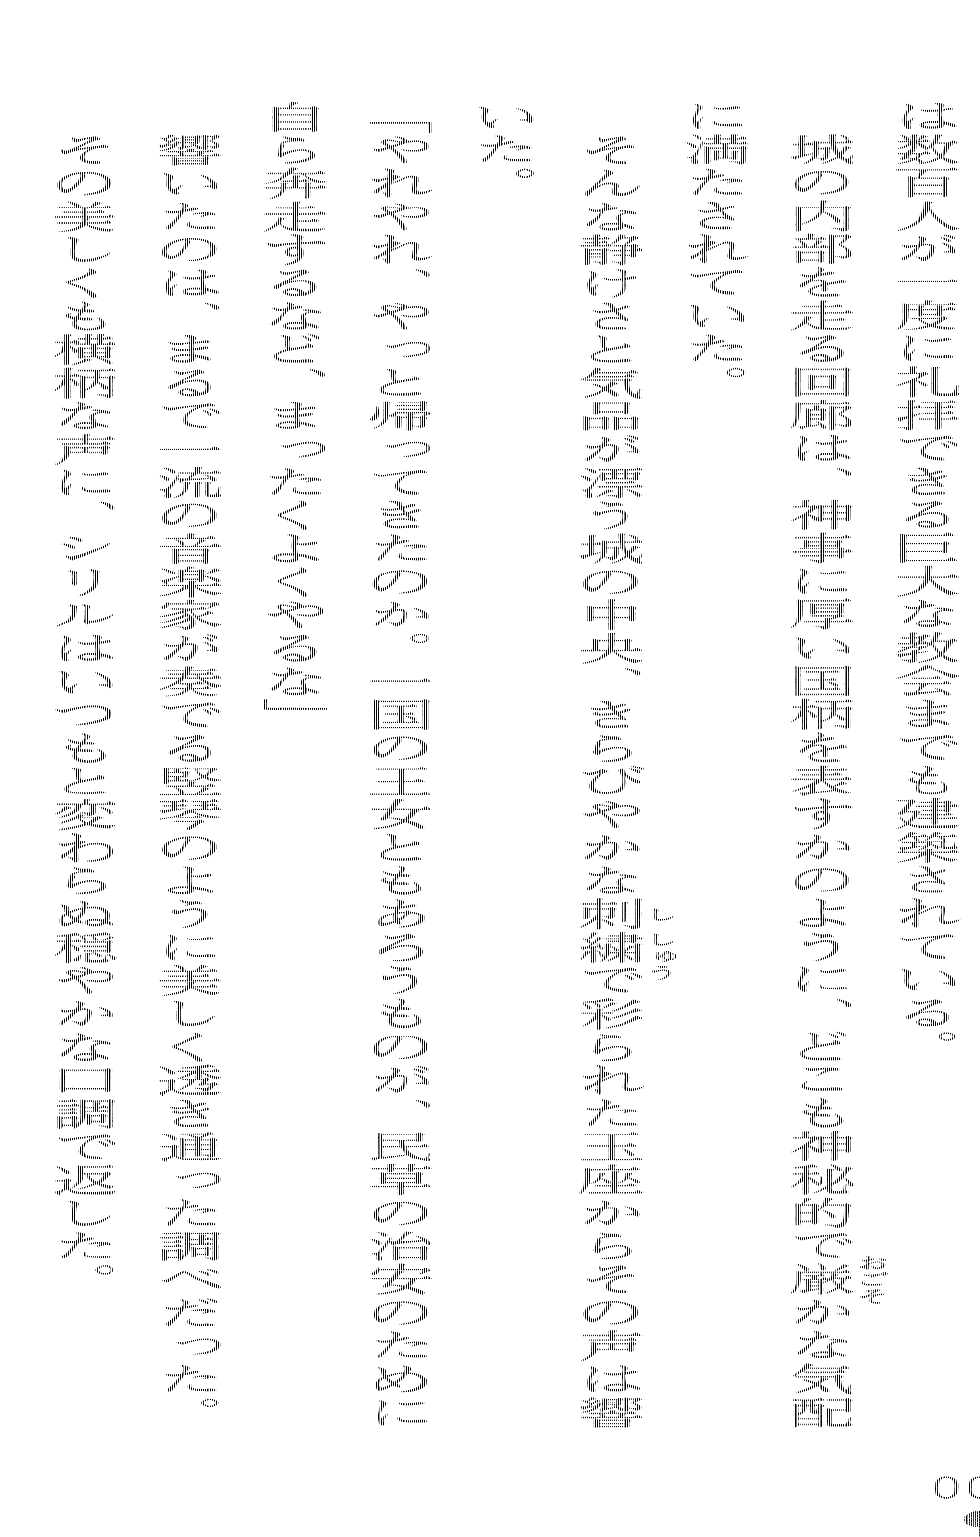 は数百人が一度に礼拝できる巨大な教会までも建築されている。
城の内部を走る回廊は、神事に厚い国柄を表すかのように、どこも神秘的で厳かな気配
おごそ
に満たされていた。
そんな静けさと気品が漂う城の中央、きらびやかな刺繍で彩られた玉座からその声は響
ししゅう
いた。
「やれやれ、やっと帰ってきたのか。一国の王女ともあろうものが、民草の治安のために
自ら奔走するなど、まったくよくやるな」
響いたのは、まるで一流の音楽家が奏でる竪琴のように美しく透き通った調べだった。
その美しくも横柄な声に、シリルはいつもと変わらぬ穏やかな口調で返した。